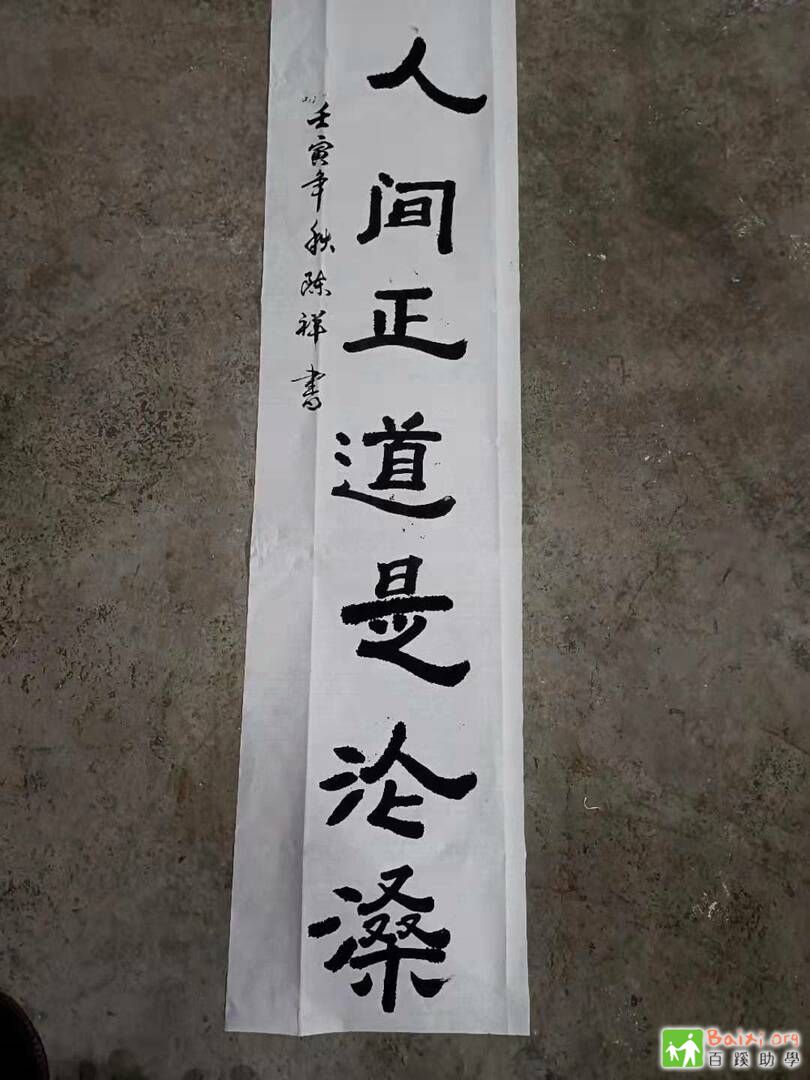 人间正道是沧桑
壬寅年秋陈祥書
Baixi.org
百蹊助學